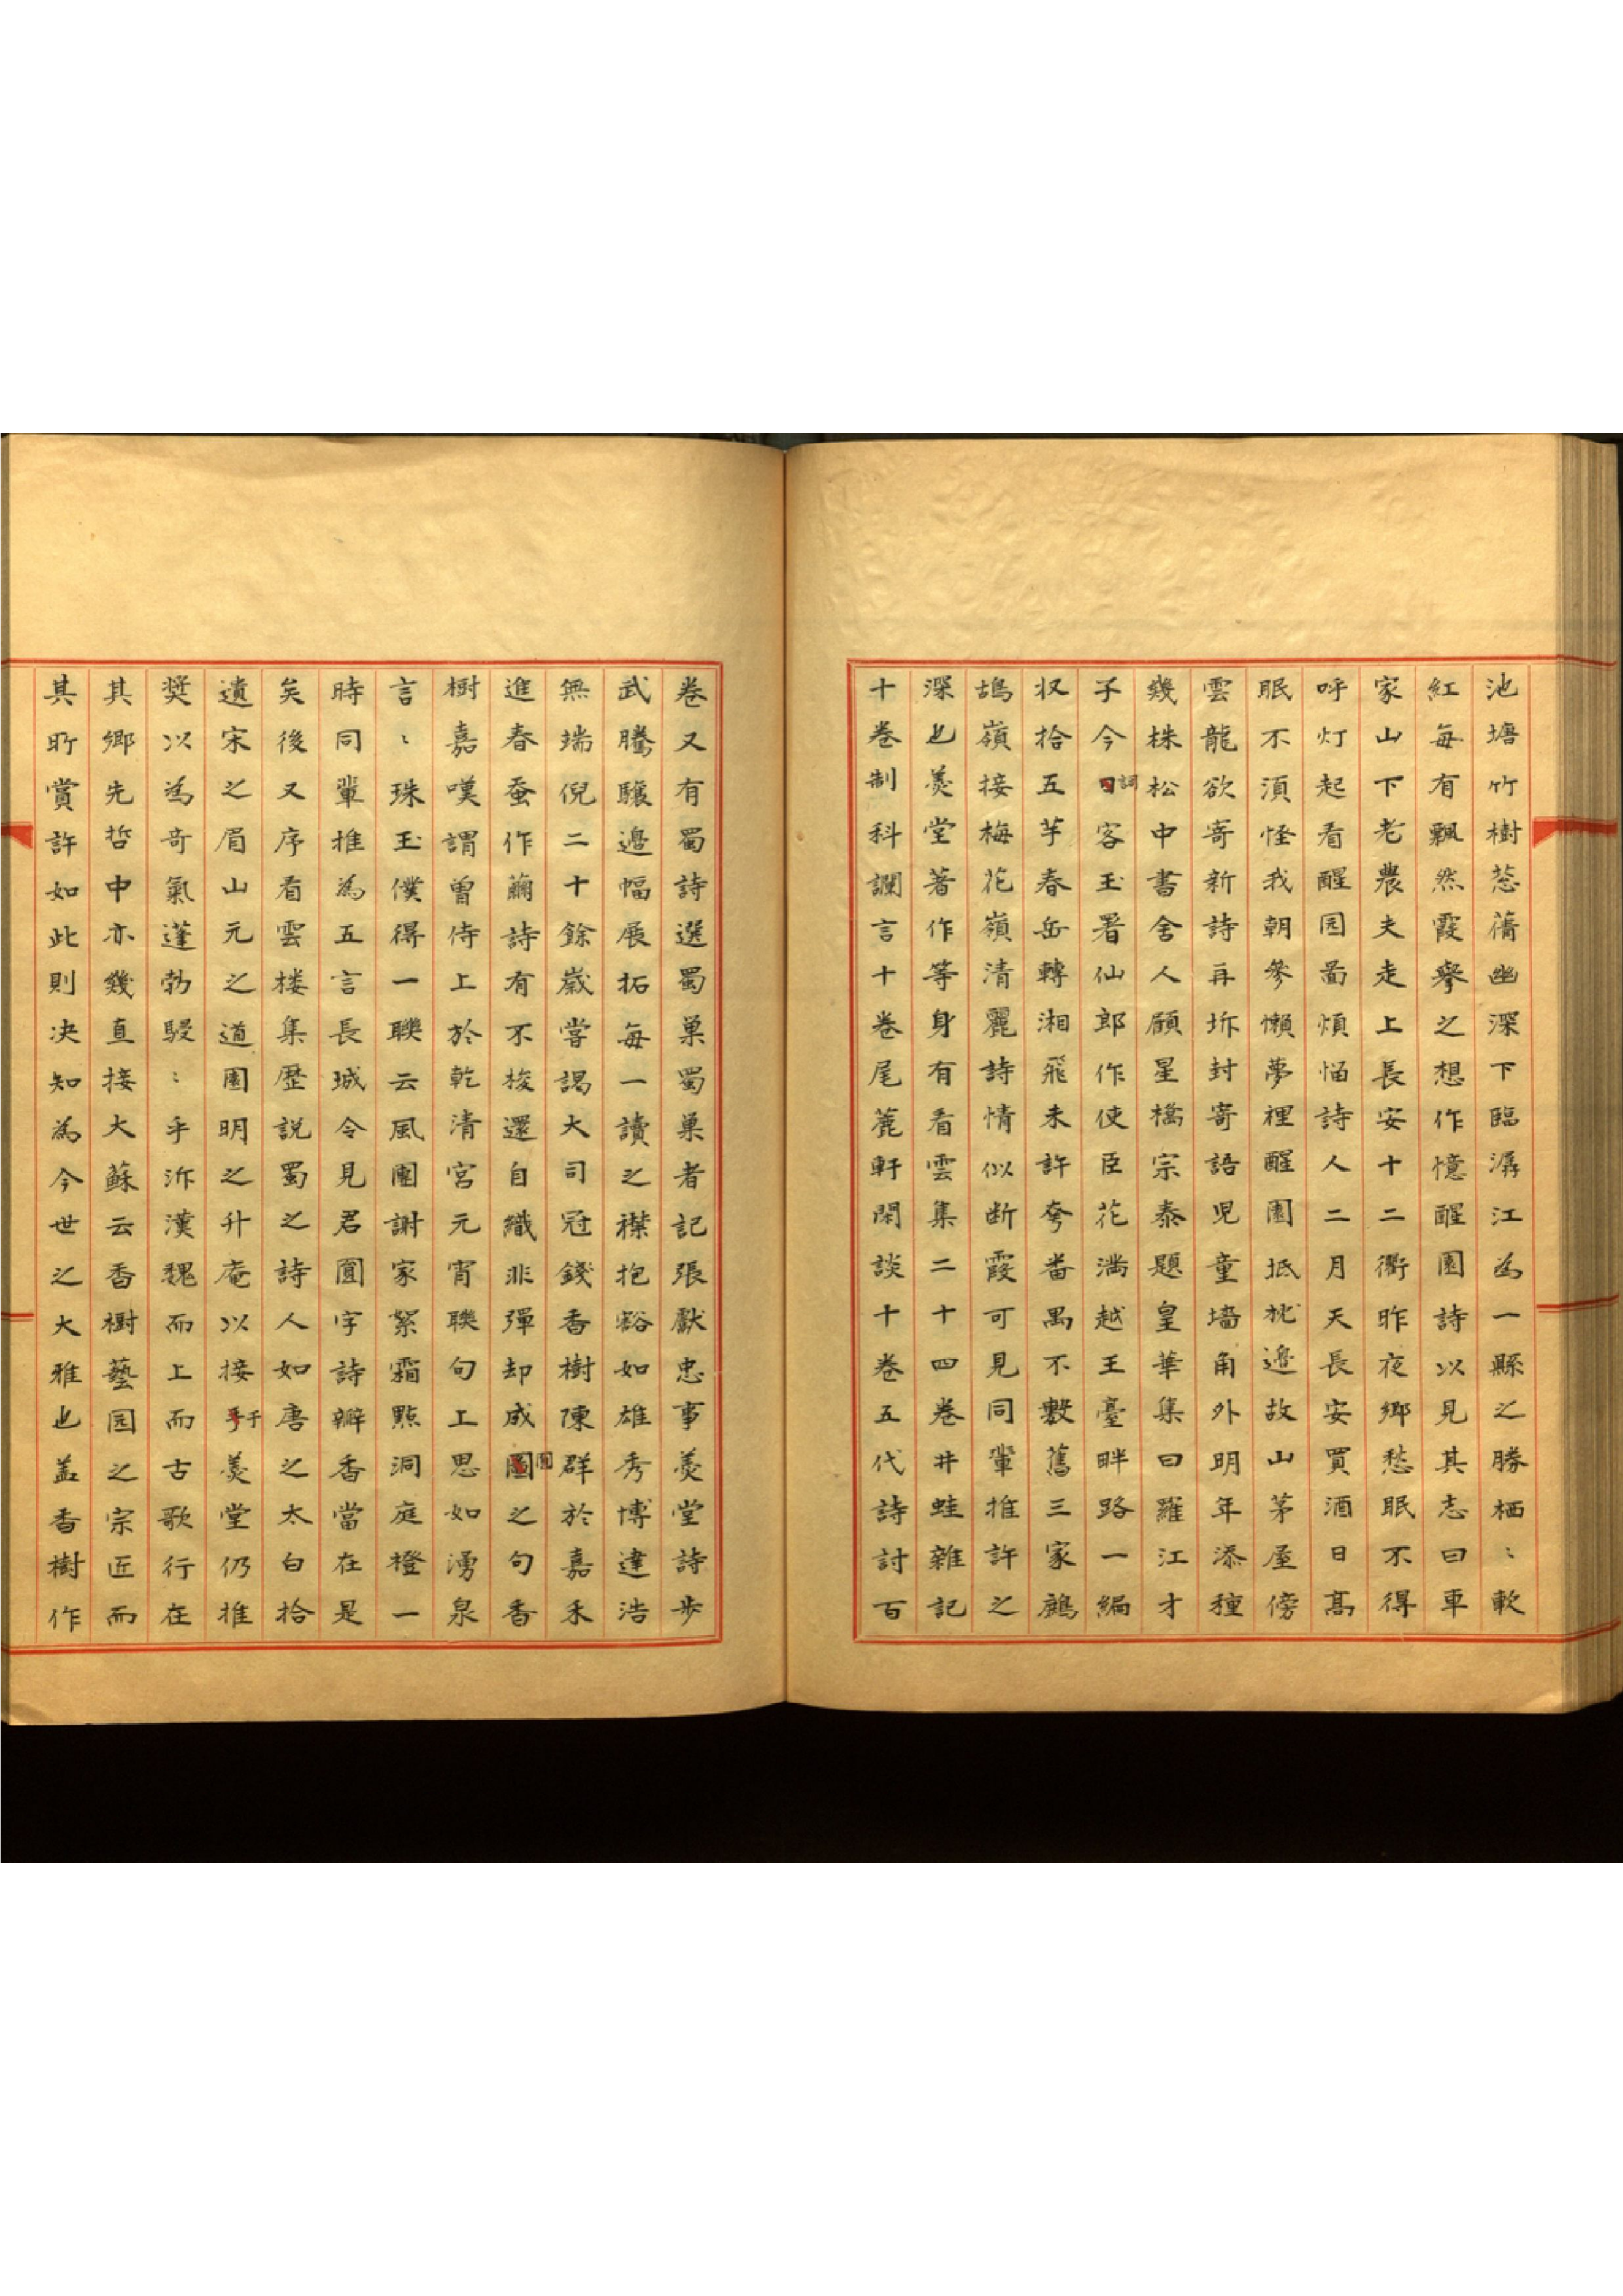 池塘竹樹葱蒨幽深下臨潺江為一縣之勝栖〻軟
紅每有飄然霞舉之想作憶醒園詩以見其志曰車
家山下老農夫走上長安十二衢昨夜鄉愁眠不得
呼灯起看醒园啚煩惱詩人二月天長安買酒日高
眠不須怪我朝參懶夢裡醒園抵枕邉故山茅屋傍
雲龍欲寄新詩再坼封寄語児童墻角外明年添種
幾株松中書舍人顧星橋宗泰題皇華集曰羅江才
子今詞客玉署仙郎作使臣花満越王臺畔路一編
収拾五羊春岳轉湘飛未許夸番禺不數舊三家鷓
鴣嶺接梅花嶺清麗詩情似断霞可見同輩推許之
深也羹堂著作等身有看雲集二十四卷井蛙雜記
十卷制科讕言十卷尾蔗軒閑談十卷五代詩討百
卷又有蜀詩選蜀巢蜀巢者記張獻忠事羹堂詩步
武騰驤邉幅展拓每一讀之襟抱豁如雄秀博達浩
無端倪二十餘歲嘗謁大司冠錢香樹陳群於嘉禾
進春蚕作繭詩有不梭還自織非彈却成圓之句香
樹嘉嘆謂曾侍上於乾清宮元宵聯句上思如湧泉
言〻珠玉僕得一聯云風團謝家絮霜點洞庭橙一
時同輩推為五言長城令見君圓字詩瓣香當在是
矣後又序看雲楼集歷説蜀之詩人如唐之太白拾
遺宋之眉山元之道園明之升庵以接于羹堂仍推
奬以為奇氣蓬勃駸〻乎泝漢魏而上而古歌行在
其鄉先哲中亦幾直接大蘇云香樹藝园之宗匠而
其所賞許如此則决知為今世之大雅也盖香樹作